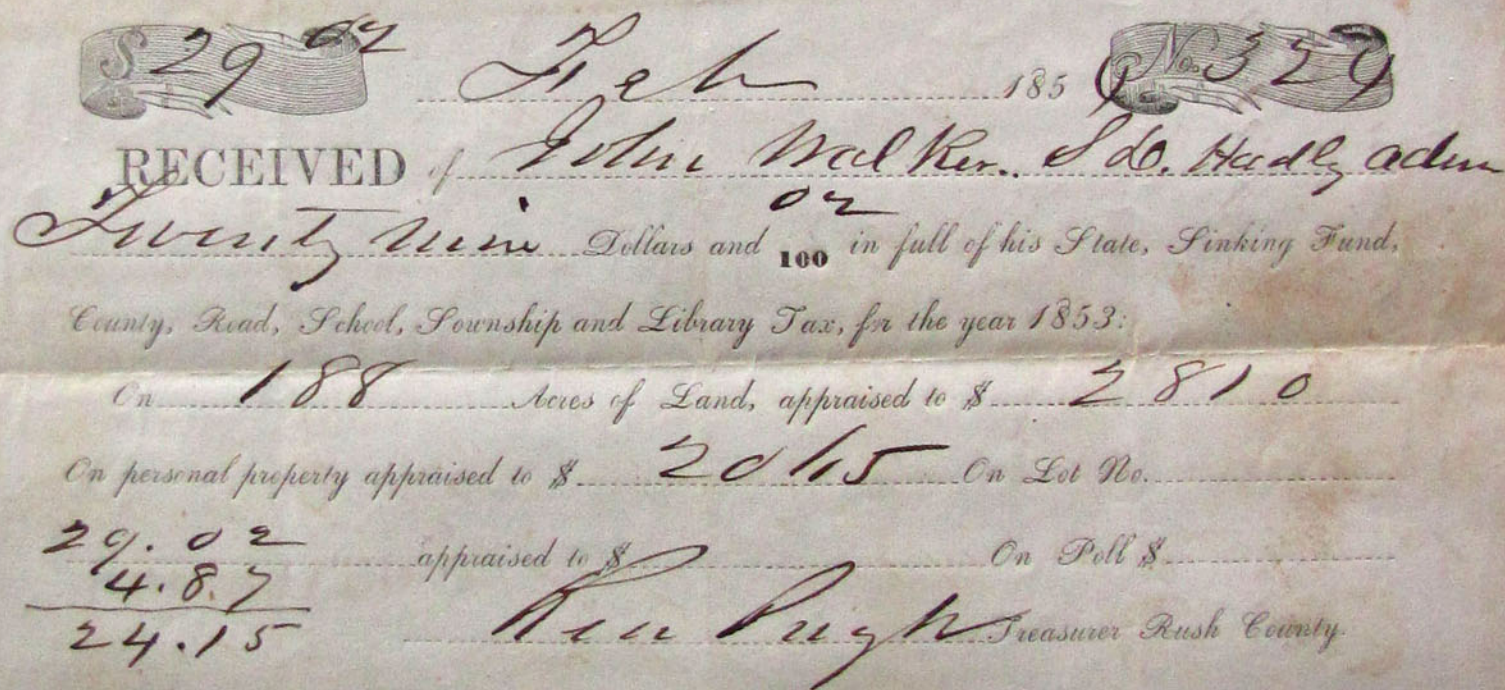 $ 29 02 Feb 185 No. 329
RECEIVED of John Walker. Hadly adm
Twenty nine Dollars and 02/100 in full of his State, Sinking Fund,
County, Road, School, Township and Library Tax, for the year 1853:
On 188 Acres of Land, appraised to $ 2810
On personal property appraised to $ 2015 On Lot No.
29.02 appraised to $ On Poll $
4.87
24.15 Pugh Treasurer Rush County.